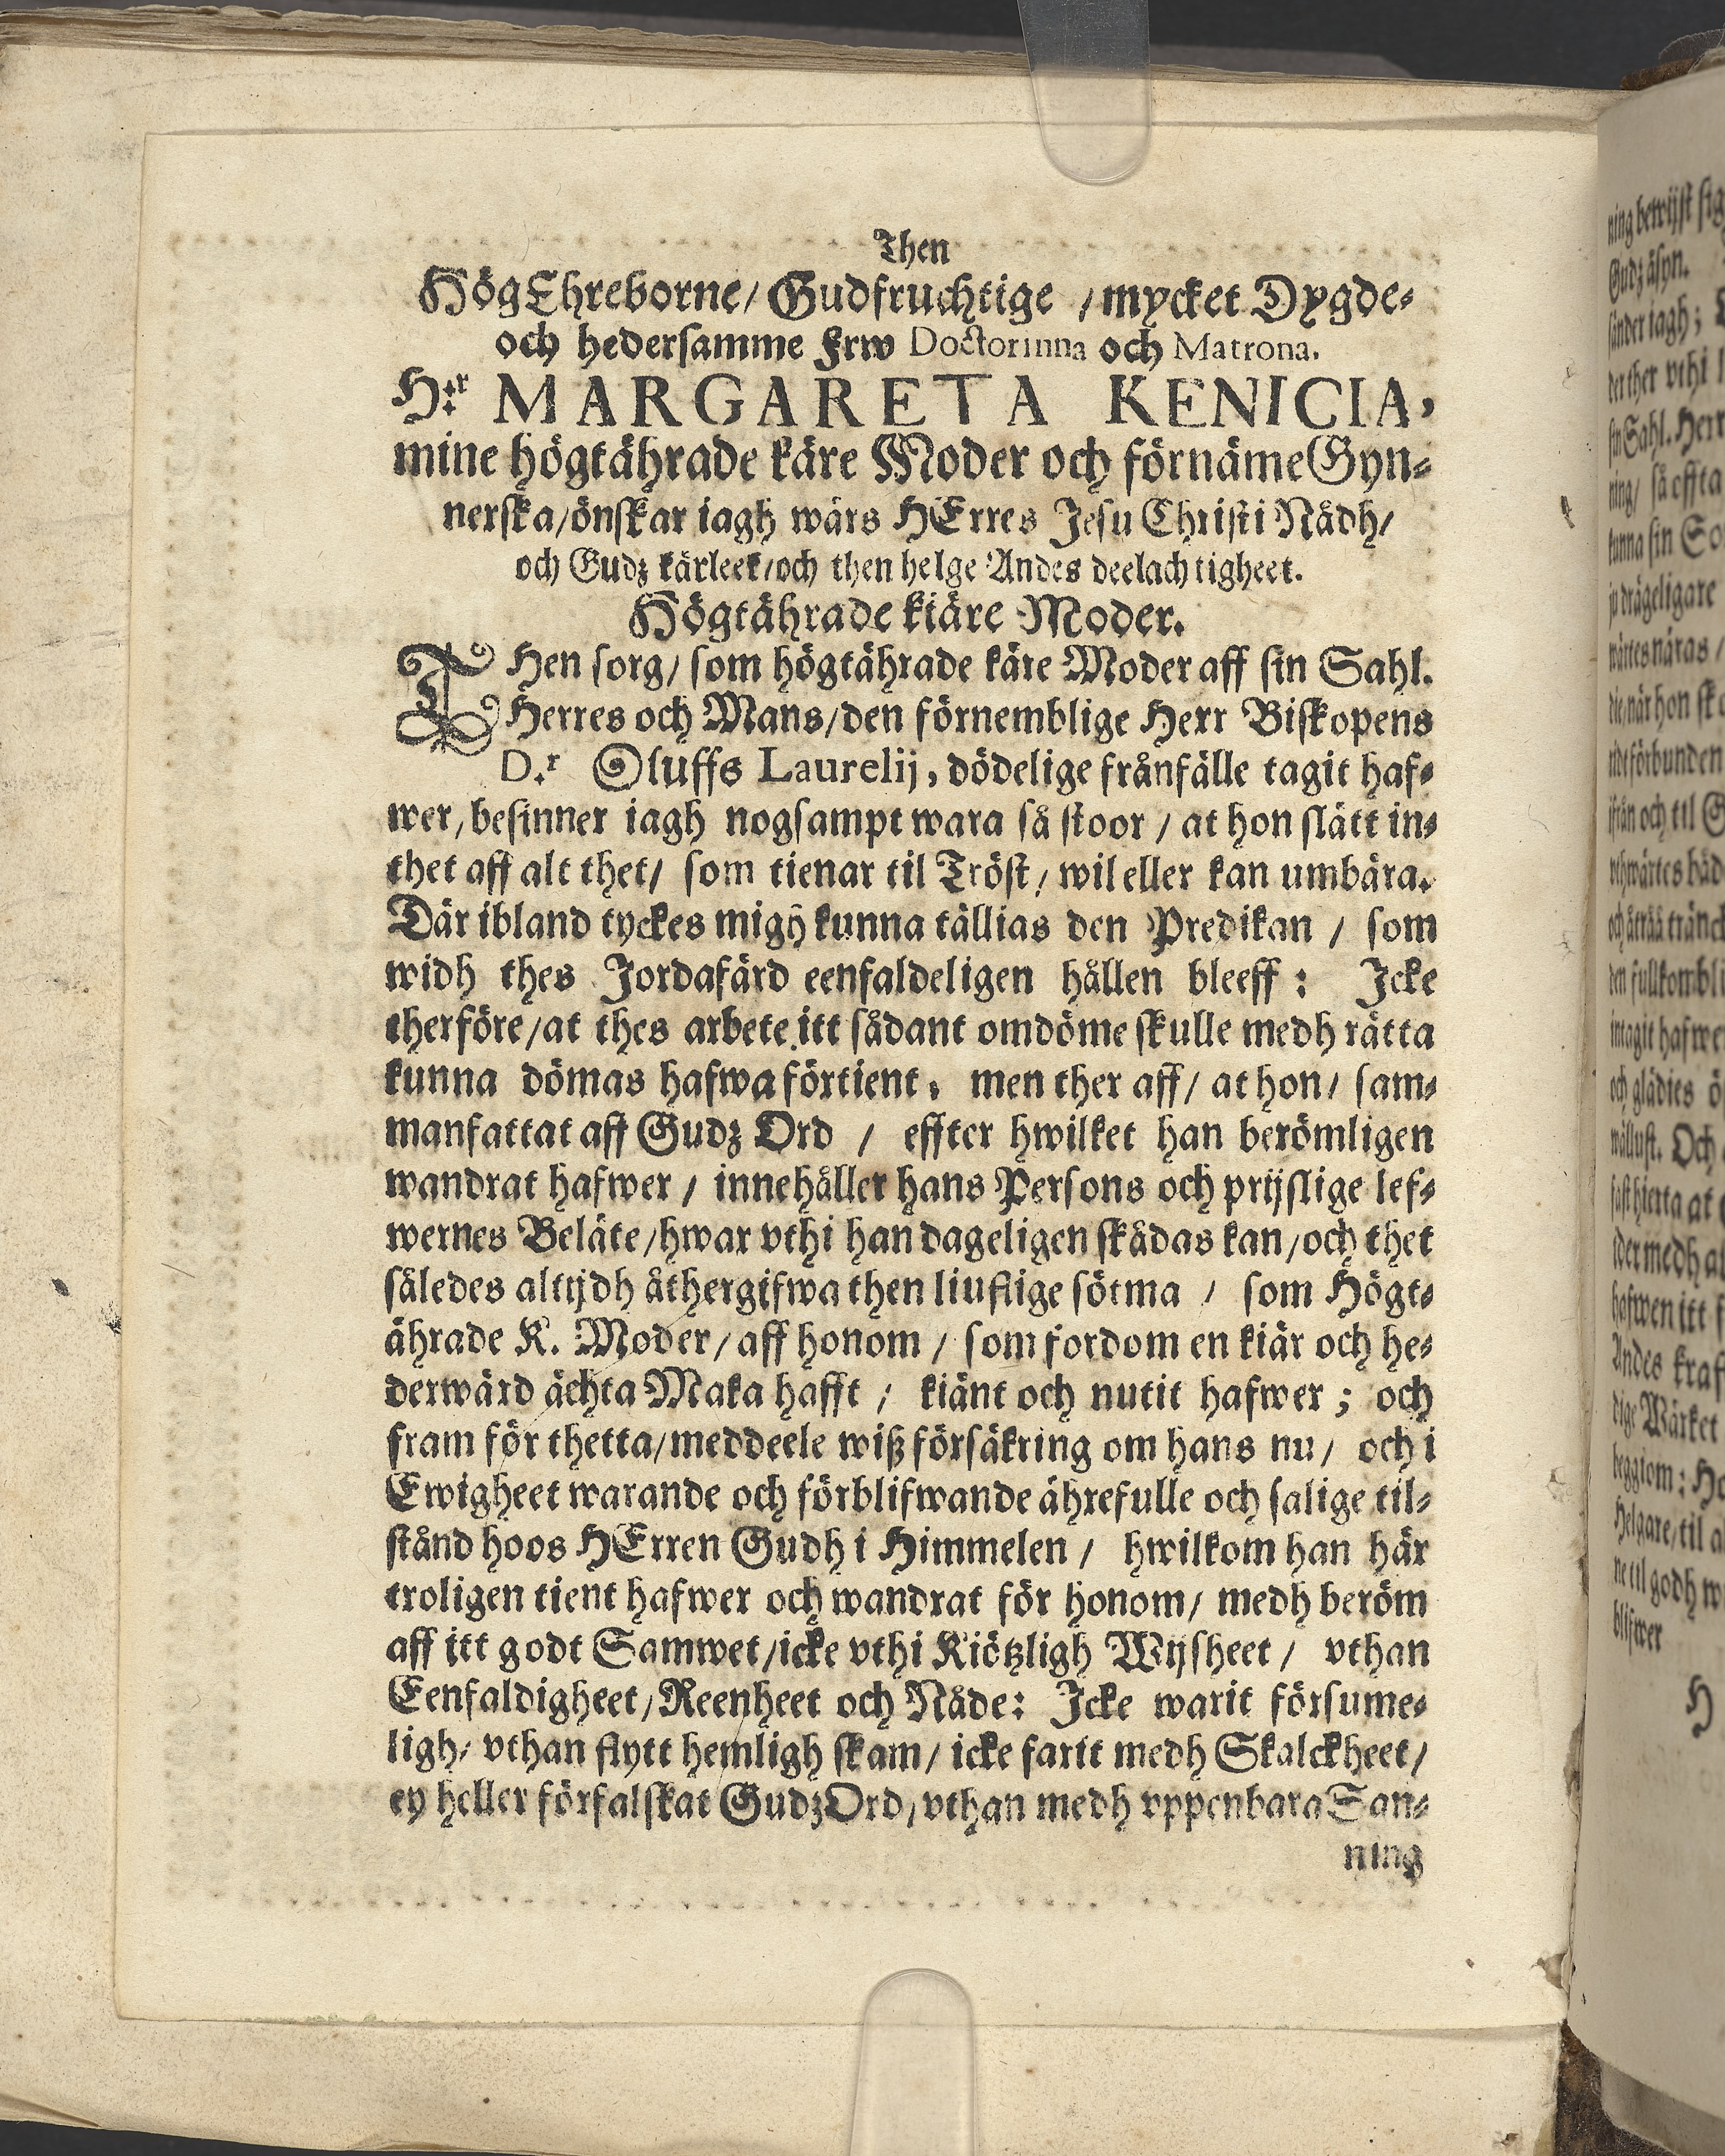 Then
HögEhreborne/ Gudfruchtige / mycket Dygde-
och hedersamme Frw Doctorinna och Matrona.
H:r MARGARETA KENICIA,
mine högtährade käre Moder och förnäme Gyn-
nerska/ önskar iagh wårs HErres Jesu Christi Nådh/
och Gudz kärleek/ och then helge Andes deelachtigheet.
Högtährade kiäre Moder.
THen sorg/ som högtährade käre Moder aff sin Sahl.
Herres och Mans/ den förnemblige Herr Biskopens
D.r Oluffs Laurelij, dödelige frånfälle tagit haf-
wer, besinner iagh nogsampt wara så stoor / at hon slätt in-
thet aff alt thet/ som tienar til Tröst/ wil eller kan umbära.
Där ibland tyckes migh kunna tällias den Predikan / som
widh thes Jordafärd eenfaldeligen hållen bleeff: Icke
therföre/ at thes arbete itt sådant omdöme skulle medh rätta
kunna dömas hafwa förtient, men ther aff/ at hon/ sam-
manfattat aff Gudz Ord / effter hwilket han berömligen
wandrat hafwer / innehåller hans Persons och prijslige lef-
wernes Beläte/ hwar vthi han dageligen skådas kan/ och thet
således altijdh åthergifwa then liuflige sötma / som Högt-
ährade K. Moder/ aff honom / som fordom en kiär och he-
derwärd ächta Maka hafft / kiänt och nutit hafwer; och
fram för thetta/ meddeele wiß försäkring om hans nu/ och i
Ewigheet warande och förblifwande ährefulle och salige til-
stånd hoos HErren Gudh i Himmelen / hwilkom han här
troligen tient hafwer och wandrat för honom/ medh beröm
aff itt godt Samwet/ icke vthi Kiötzligh Wijsheet / vthan
Eenfaldigheet/ Reenheet och Nåde: Icke warit försume-
ligh/ vthan flytt hemligh skam/ icke farit medh Skalckheet/
ey heller förfalskat Gudz Ord/ vthan medh vppenbara San-
ning